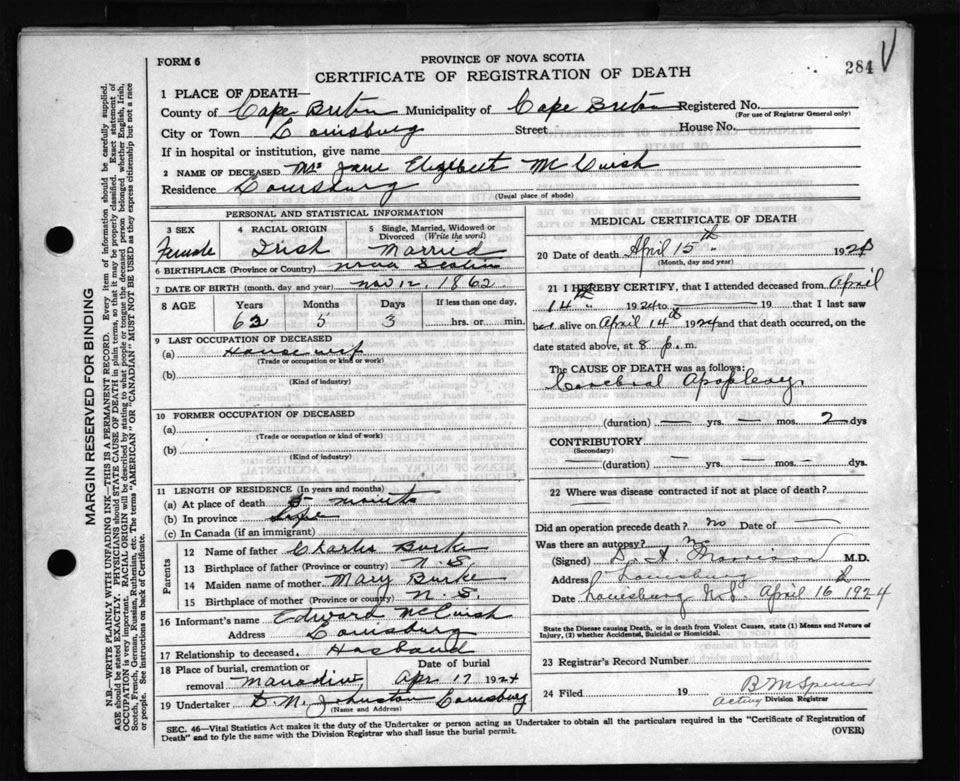 FORM 6
PROVINCE OF NOVA SCOTIA
CERTIFICATE OF REGISTRATION OF DEATH
284
1 PLACE OF DEATH—
County of Cape Breton Municipality of Cape Breton Registered No.
(For use of Registrar General only)
City or Town Louisburg Street House No.
If in hospital or institution, give name
2 NAME OF DECEASED Mrs Jane Elizabeth McCuish
Residence Louisburg
(Usual place of abode)
PERSONAL AND STATISTICAL INFORMATION
3 SEX 4 RACIAL ORIGIN 5 Single, Married, Widowed or Divorced (Write the word)
Female Irish Married
6 BIRTHPLACE (Province or Country) Nova Scotia
7 DATE OF BIRTH (month, day and year) Nov 12, 1862
8 AGE Years Months Days If less than one day,
62 5 3 hrs. or min.
9 LAST OCCUPATION OF DECEASED
(a) Housewife
(Trade or occupation or kind of work)
(b)
(Kind of industry)
10 FORMER OCCUPATION OF DECEASED
(a)
(Trade or occupation or kind of work)
(b)
(Kind of industry)
11 LENGTH OF RESIDENCE (In years and months)
(a) At place of death months
(b) In province Life
(c) In Canada (if an immigrant)
Parents
12 Name of father Charles Burke
13 Birthplace of father (Province or country) N. S.
14 Maiden name of mother Mary Burke
15 Birthplace of mother (Province or country) N. S.
16 Informant's name Edward McCuish
Address Louisburg
17 Relationship to deceased Husband
18 Place of burial, cremation or removal Mainadieu Date of burial Apr 17 1924
19 Undertaker D. N. Johnston Louisburg
(Name and Address)
MEDICAL CERTIFICATE OF DEATH
20 Date of death April 15th 1924
(Month, day and year)
21 I HEREBY CERTIFY, that I attended deceased from April
14th 1924 to — 19 that I last saw
her alive on April 14th 1924 and that death occurred, on the
date stated above, at 8 p. m.
The CAUSE OF DEATH was as follows:
Cerebral Apoplexy
(duration) — yrs. — mos. 2 dys
CONTRIBUTORY
(Secondary)
(duration) — yrs. — mos. — dys.
22 Where was disease contracted if not at place of death?
Did an operation precede death? no Date of —
Was there an autopsy? no
(Signed) M.D.
Address Louisburg
Date Louisburg N.S. April 16th 1924
State the Disease causing Death, or in death from Violent Causes, state (1) Means and Nature of
Injury, (2) whether Accidental, Suicidal or Homicidal.
23 Registrar's Record Number
24 Filed 19 B M Spencer
Acting Division Registrar
SEC. 46—Vital Statistics Act makes it the duty of the Undertaker or person acting as Undertaker to obtain all the particulars required in the "Certificate of Registration of
Death" and to fyle the same with the Division Registrar who shall issue the burial permit.
(OVER)
MARGIN RESERVED FOR BINDING
N.B.—WRITE PLAINLY WITH UNFADING INK—THIS IS A PERMANENT RECORD. Every item of information should be carefully supplied.
AGE should be stated EXACTLY. PHYSICIANS should STATE CAUSE OF DEATH in plain terms, so that it may be properly classified. Exact statement of
OCCUPATION is very important. RACIAL ORIGIN will be described by stating to what people or tongue the deceased person belonged whether English, Irish,
Scotch, French, German, Russian, Ruthenian, etc. The terms "AMERICAN" OR "CANADIAN" MUST NOT BE USED as they express citizenship but not a race
or people. See instructions on back of Certificate.